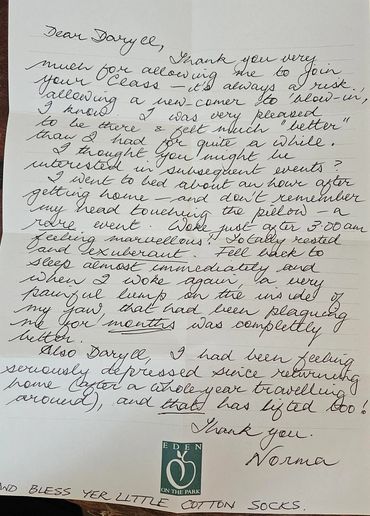 Dear Daryll,
Thank you very
much for allowing me to join
your Class – it's always a risk,
allowing a new-comer to 'blow-in',
I know. I was very pleased
to be there & felt much "better"
than I had for quite a while.
I thought you might be
interested in subsequent events?
I went to bed about an hour after
getting home – and don't remember
my head touching the pillow – a
rare event. Woke just after 3.00am
feeling marvellous! Totally rested
and exuberant. Fell back to
sleep almost immediately and
when I woke again, a very
painful lump on the inside of
my jaw, that had been plaguing
me for months was completly
better.
Also Daryll, I had been feeling
seriously depressed since returning
home (after a whole year travelling
around), and thats has lifted too!
Thank you.
Norma
EDEN
ON THE PARK
AND BLESS YER LITTLE COTTON SOCKS.